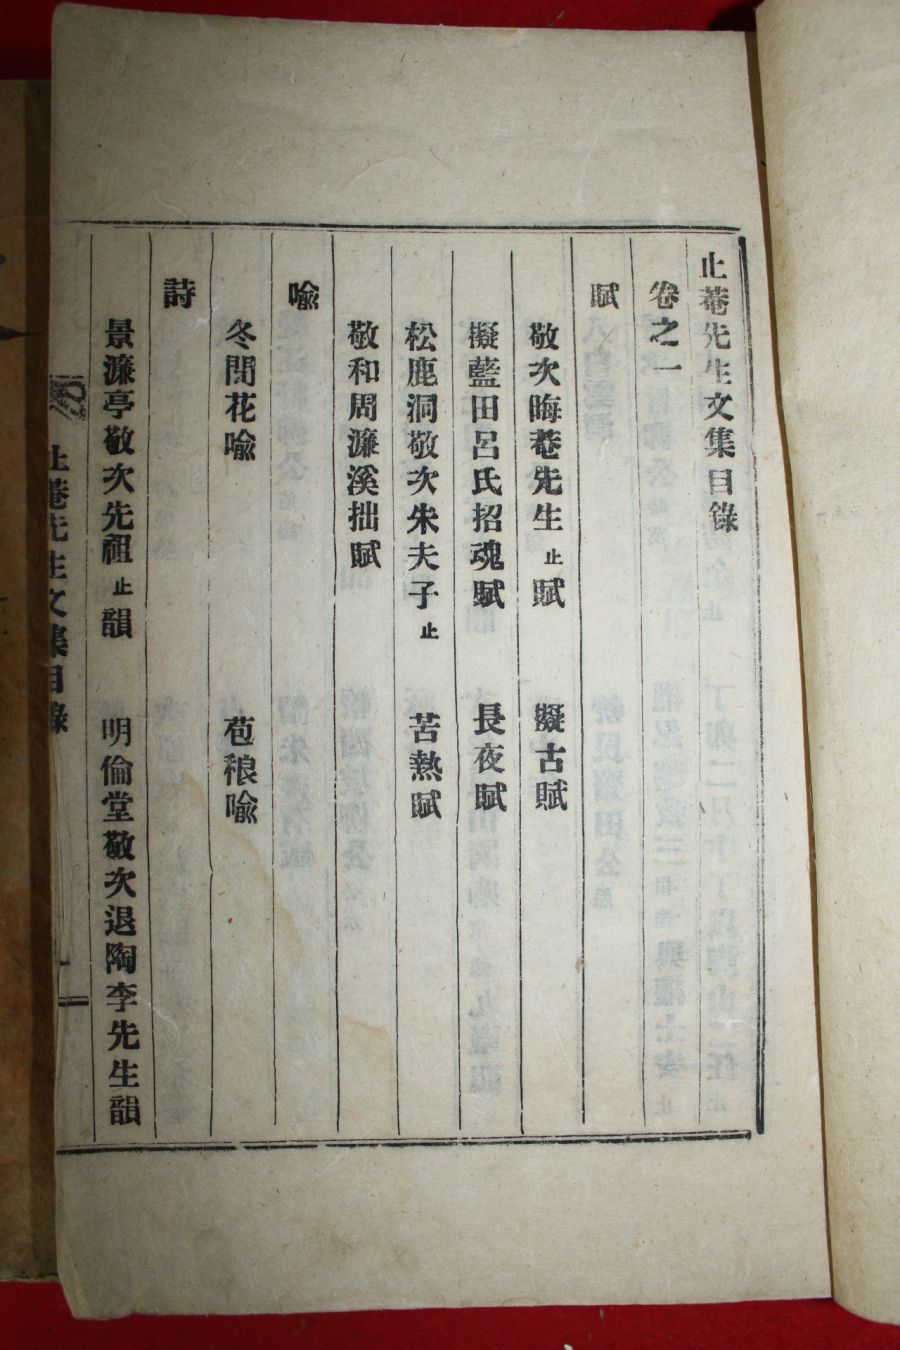 止菴先生文集目錄
卷之一
賦
敬次晦菴先生止賦 擬古賦
擬藍田呂氏招魂賦 長夜賦
松鹿洞敬次朱夫子止 苦熱賦
敬和周濂溪拙賦
喩
冬閒花喩 苞稂喩
詩
景濂亭敬次先祖止韻 明倫堂敬次退陶李先生韻
止菴先生文集目錄